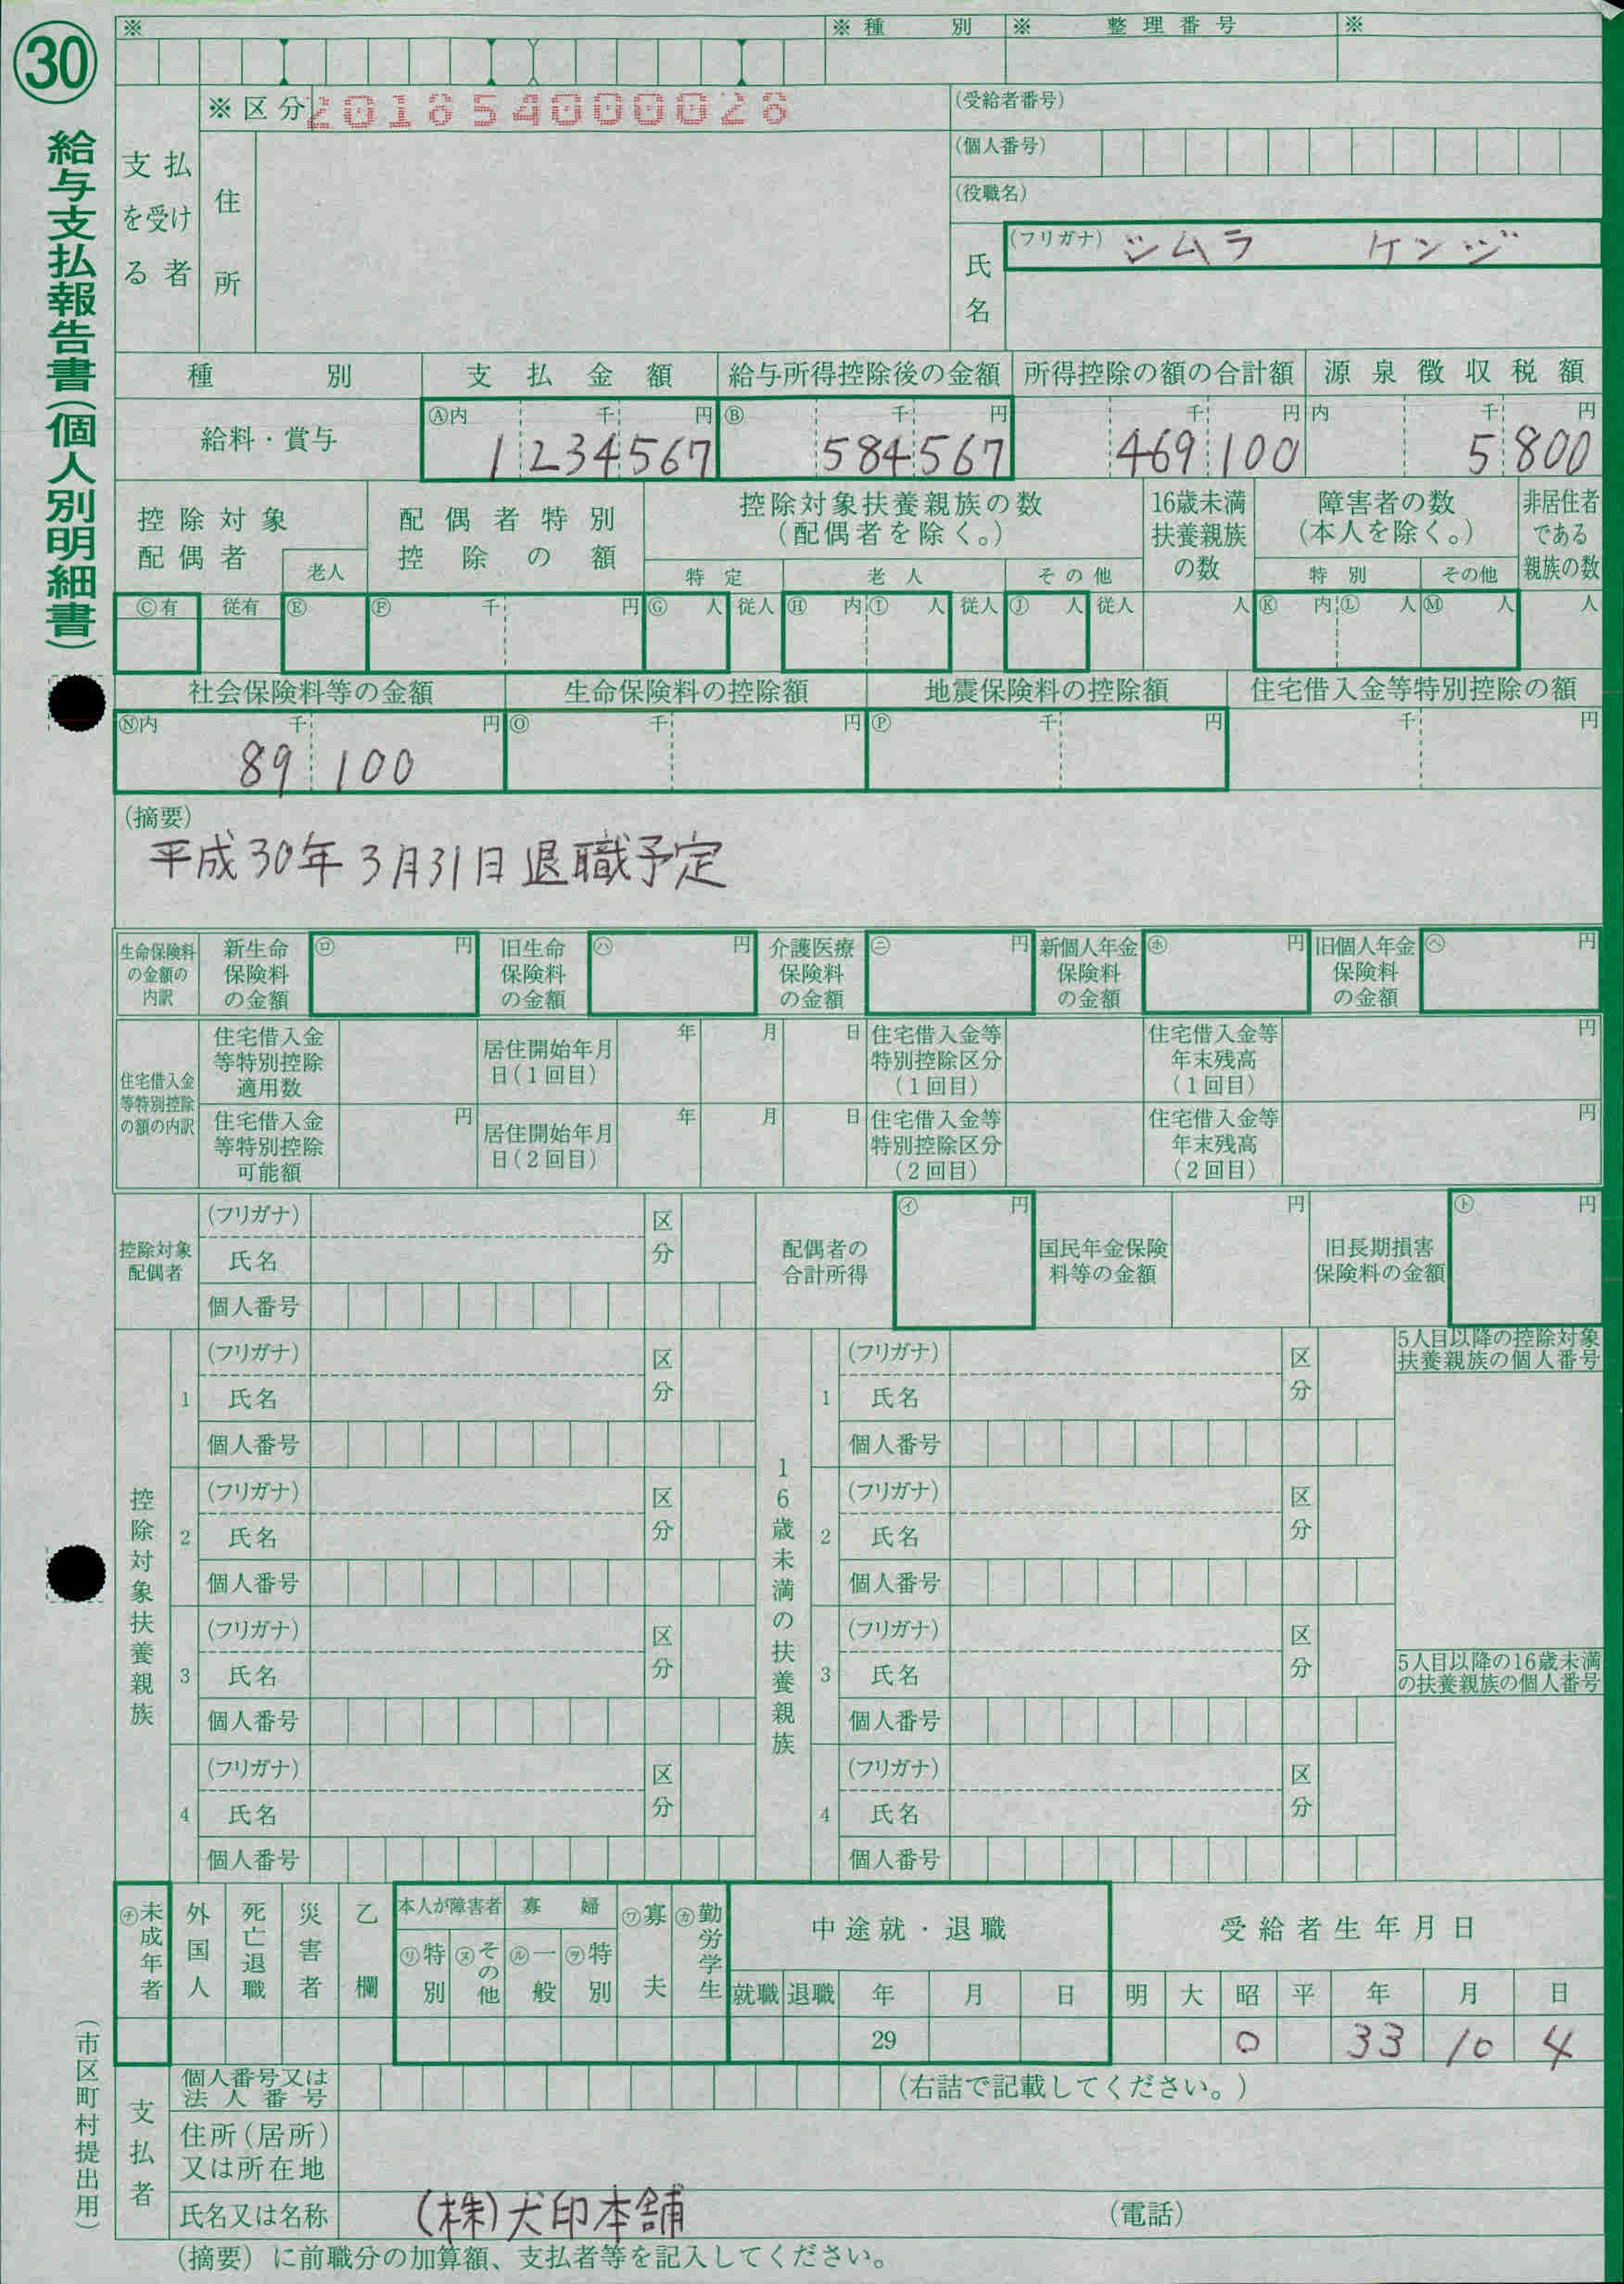 30
給与支払報告書(個人別明細書)
(市区町村提出用)
※ ※種別 ※整理番号 ※
※区分 201854000028
支払を受ける者
住所
(受給者番号)
(個人番号)
(役職名)
氏名
(フリガナ) シムラ ケンジ
種別 支払金額 給与所得控除後の金額 所得控除の額の合計額 源泉徴収税額
給料・賞与
Ⓐ内 千 円 Ⓑ 千 円 千 円 内 千 円
1234567 584567 469100 5800
控除対象配偶者 老人
配偶者特別控除の額
控除対象扶養親族の数(配偶者を除く。)
特定 老人 その他
16歳未満扶養親族の数
障害者の数(本人を除く。)
特別 その他
非居住者である親族の数
Ⓒ有 従有 Ⓔ Ⓕ 千 円 Ⓖ 人 従人 Ⓗ 内 Ⓘ 人 従人 Ⓙ 人 従人 人 Ⓚ 内 Ⓛ 人 Ⓜ 人 人
社会保険料等の金額 生命保険料の控除額 地震保険料の控除額 住宅借入金等特別控除の額
Ⓝ内 千 円 Ⓞ 千 円 Ⓟ 千 円 千 円
89 100
(摘要)
平成30年3月31日退職予定
生命保険料の金額の内訳
新生命保険料の金額 ㋺ 円
旧生命保険料の金額 ㋩ 円
介護医療保険料の金額 ㋥ 円
新個人年金保険料の金額 ㋭ 円
旧個人年金保険料の金額 ㋬ 円
住宅借入金等特別控除の額の内訳
住宅借入金等特別控除適用数
居住開始年月日(1回目) 年 月 日
住宅借入金等特別控除区分(1回目)
住宅借入金等年末残高(1回目) 円
住宅借入金等特別控除可能額 円
居住開始年月日(2回目) 年 月 日
住宅借入金等特別控除区分(2回目)
住宅借入金等年末残高(2回目) 円
控除対象配偶者
(フリガナ) 区分
氏名
個人番号
配偶者の合計所得 ㋑ 円
国民年金保険料等の金額 円
旧長期損害保険料の金額 ㋣ 円
控除対象扶養親族
1 (フリガナ) 区分
氏名
個人番号
2 (フリガナ) 区分
氏名
個人番号
3 (フリガナ) 区分
氏名
個人番号
4 (フリガナ) 区分
氏名
個人番号
16歳未満の扶養親族
1 (フリガナ) 区分
氏名
個人番号
2 (フリガナ) 区分
氏名
個人番号
3 (フリガナ) 区分
氏名
個人番号
4 (フリガナ) 区分
氏名
個人番号
5人目以降の控除対象扶養親族の個人番号
5人目以降の16歳未満の扶養親族の個人番号
㋠未成年者 外国人 死亡退職 災害者 乙欄
本人が障害者 ㋷特別 ㋦その他
寡婦 ㋸一般 ㋾特別
㋻寡夫 ㋕勤労学生
中途就・退職
就職 退職 年 月 日
29
受給者生年月日
明 大 昭 平 年 月 日
○ 33 10 4
支払者
個人番号又は法人番号 (右詰で記載してください。)
住所(居所)又は所在地
氏名又は名称 (株)犬印本舗 (電話)
(摘要)に前職分の加算額、支払者等を記入してください。